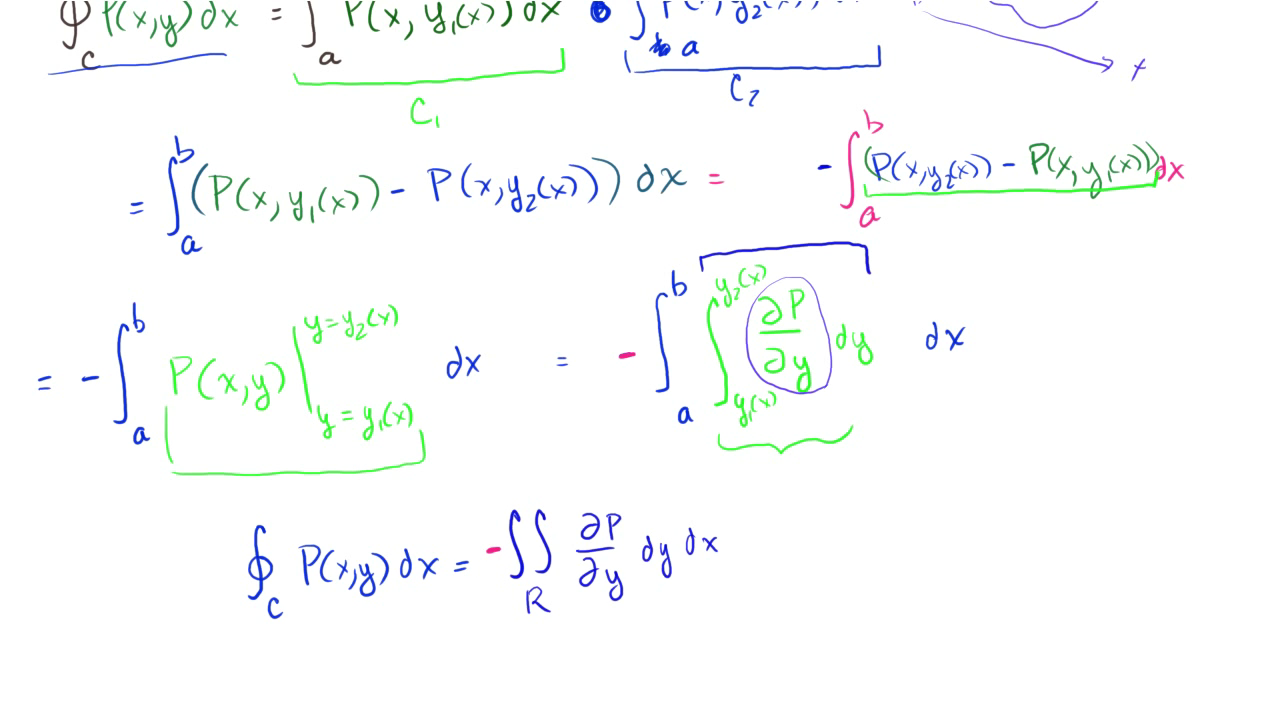 ∮_C P(x,y) dx = ∫_a P(x, y₁(x)) dx ∫_a y₂(x)
C₁ C₂ x
= ∫_a^b (P(x, y₁(x)) - P(x, y₂(x))) dx = - ∫_a^b (P(x, y₂(x)) - P(x, y₁(x))) dx
= - ∫_a^b P(x,y) |_{y = y₁(x)}^{y = y₂(x)} dx = - ∫_a^b ∫_{y₁(x)}^{y₂(x)} ∂P/∂y dy dx
∮_C P(x,y) dx = - ∬_R ∂P/∂y dy dx